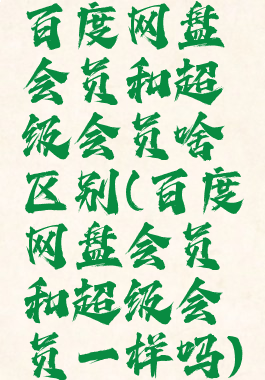 百度网盘
会员和超
级会员啥
区别(百度
网盘会员
和超级会
员一样吗)